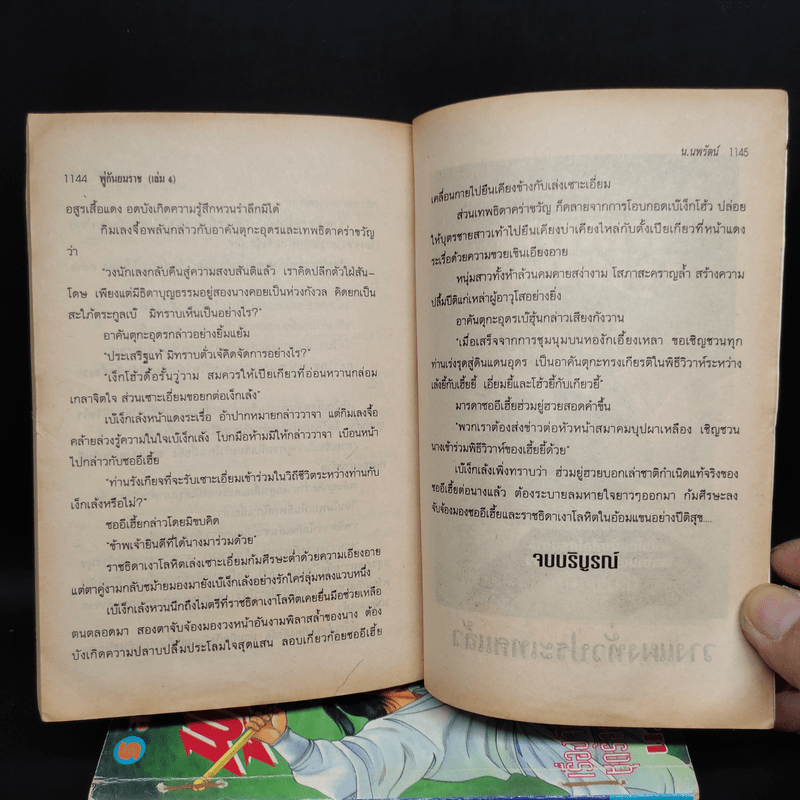 1144 พู่กันยมราช (เล่ม 4)
อสูรเสื้อแดง อดบังเกิดความรู้สึกหวนรำลึกมิได้
กิมเลงจื้อพลันกล่าวกับอาคันตุกะอุดรและเทพธิดาคร่าขวัญ
ว่า
"วงนักเลงกลับคืนสู่ความสงบสันติแล้ว เราคิดปลีกตัวใฝ่สัน-
โดษ เพียงแต่มีธิดาบุญธรรมอยู่สองนางคอยเป็นห่วงกังวล คิดยกเป็น
สะใภ้ตระกูลเบ๊ มิทราบเห็นเป็นอย่างไร?"
อาคันตุกะอุดรกล่าวอย่างยิ้มแย้ม
"ประเสริฐแท้ มิทราบตั่วเจ้คิดจัดการอย่างไร?"
"เง็กโฮ้วดื้อรั้นวู่วาม สมควรให้เปียเกียวที่อ่อนหวานกล่อม
เกลาจิตใจ ส่วนเซาะเอี่ยมขอยกต่อเง็กเล้ง"
เบ๊เง็กเล้งหน้าแดงระเรื่อ อ้าปากหมายกล่าววาจา แต่กิมเลงจื้อ
คล้ายล่วงรู้ความในใจเบ๊เง็กเล้ง โบกมือห้ามมิให้กล่าววาจา เบือนหน้า
ไปกล่าวกับชออีเฮี้ย
"ท่านรังเกียจที่จะรับเซาะเอี่ยมเข้าร่วมในวิถีชีวิตระหว่างท่านกับ
เง็กเล้งหรือไม่?"
ชออีเฮี้ยกล่าวโดยมิขบคิด
"ข้าพเจ้ายินดีที่ได้นางมาร่วมด้วย"
ราชธิดาเงาโลหิตเล่งเซาะเอี่ยมก้มศีรษะต่ำด้วยความเอียงอาย
แต่ตาคู่งามกลับชม้ายมองมายังเบ๊เง็กเล้งอย่างรักใคร่ลุ่มหลงแวบหนึ่ง
เบ๊เง็กเล้งหวนนึกถึงไมตรีที่ราชธิดาเงาโลหิตเคยยื่นมือช่วยเหลือ
ตนตลอดมา สองตาจับจ้องมองวงหน้าอันงามพิลาสล้ำของนาง ต้อง
บังเกิดความปลาบปลื้มประโลมใจสุดแสน ลอบเกี่ยวก้อยชออีเฮี้ย
น.นพรัตน์ 1145
เคลื่อนกายไปยืนเคียงข้างกับเล่งเซาะเอี่ยม
ส่วนเทพธิดาคร่าขวัญ ก็คลายจากการโอบกอดเบ๊เง็กโฮ้ว ปล่อย
ให้บุตรชายสาวเท้าไปยืนเคียงบ่าเคียงไหล่กับตั้งเปียเกียวที่หน้าแดง
ระเรื่อด้วยความขวยเขินเอียงอาย
หนุ่มสาวทั้งห้าล้วนคมคายสง่างาม โสภาสะคราญล้ำ สร้างความ
ปลื้มปีติแก่เหล่าผู้อาวุโสอย่างยิ่ง
อาคันตุกะอุดรเบ๊ฮุ้นกล่าวเสียงกังวาน
"เมื่อเสร็จจากการชุมนุมบนหอง้กเอี้ยงเหลา ขอเชิญชวนทุก
ท่านเร่งรุดสู่ดินแดนอุดร เป็นอาคันตุกะทรงเกียรติในพิธีวิวาห์ระหว่าง
เล้งยี้กับเฮี้ยยี้ เอี่ยมยี้และโฮ้วยี้กับเกียวยี้"
มารดาชออีเฮี้ยฮ่วมยู่ฮวยสอดคำขึ้น
"พวกเราต้องส่งข่าวต่อหัวหน้าสมาคมบุปผาเหลือง เชิญชวน
นางเข้าร่วมพิธีวิวาห์ของเฮี้ยยี้ด้วย"
เบ๊เง็กเล้งเพิ่งทราบว่า ฮ่วมยู่ฮวยบอกเล่าชาติกำเนิดแท้จริงของ
ชออีเฮี้ยต่อนางแล้ว ต้องระบายลมหายใจยาวๆออกมา ก้มศีรษะลง
จับจ้องมองชออีเฮี้ยและราชธิดาเงาโลหิตในอ้อมแขนอย่างปีติสุข....
จบบริบูรณ์
วางแผงทั่วประเทศแล้ว